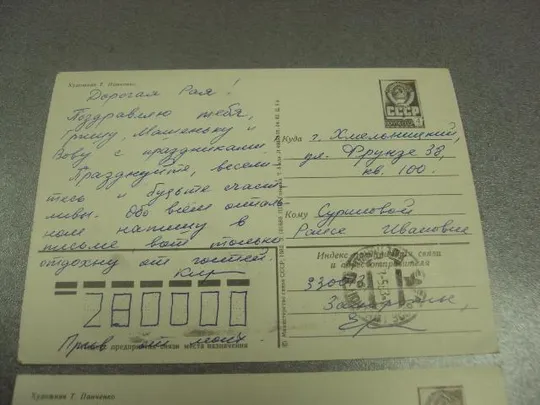 Художник Т. Панченко
Дорогая Рая!
Поздравляю тебя,
Гришу, Машеньку и
Вову с праздниками
Празднуйте, весели
тесь и будьте счаст
ливы. Обо всем осталь
ном напишу в
письме вот только
отдохну от гостей.
280000
Привет от моих
предприятия связи места назначения
СССР
Куда г. Хмельницкий,
ул. Фрунзе 38,
кв. 100.
Кому
Раисе Ивановне
Индекс предприятия связи
и адрес отправителя
Художник Т. Панченко